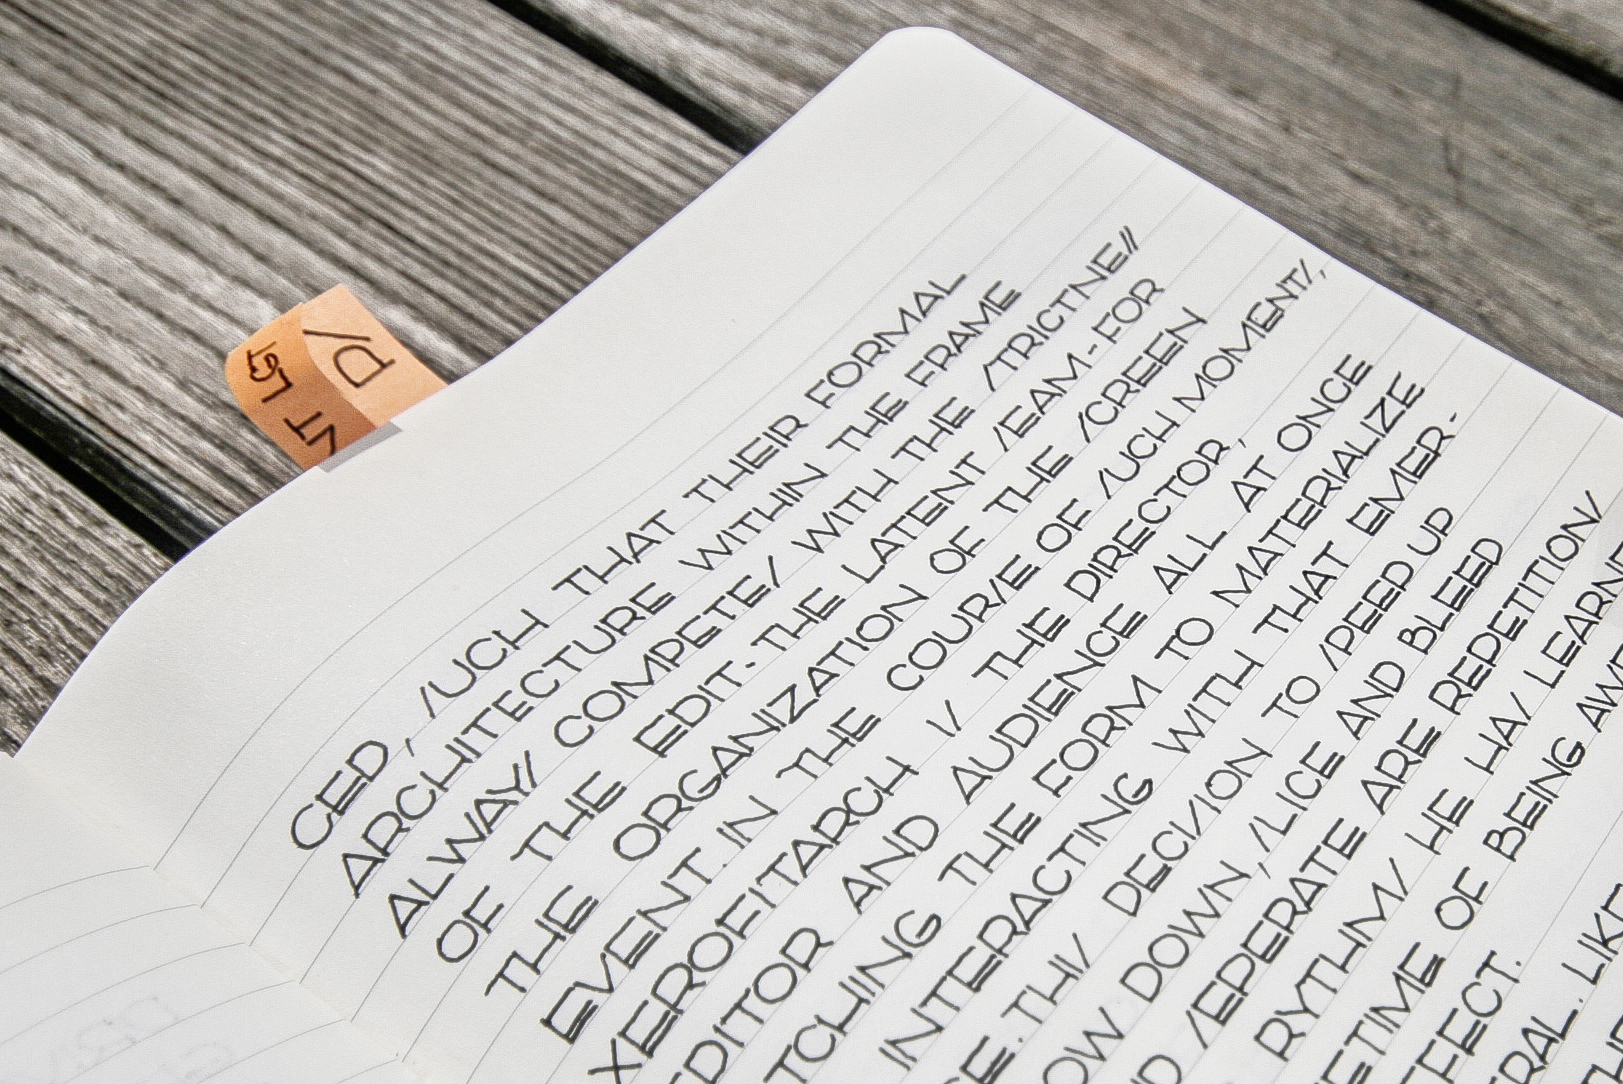 CED, SUCH THAT THEIR FORMAL
ARCHITECTURE WITHIN THE FRAME
ALWAYS COMPETES WITH THE STRICTNESS
OF THE EDIT- THE LATENT SEAM-FOR
THE ORGANIZATION OF THE SCREEN
EVENT. IN THE COURSE OF SUCH MOMENTS,
XEROFITARCH IS THE DIRECTOR,
EDITOR AND AUDIENCE ALL AT ONCE
TCHING THE FORM TO MATERIALIZE
INTERACTING WITH THAT EMER-
CE. THIS DECISION TO SPEED UP
OW DOWN, SLICE AND BLEED
D SEPERATE ARE REPETITIONS
RYTHMS HE HAS LEARNE
ETIME OF BEING AW
FFECT.
RAL. LIKE